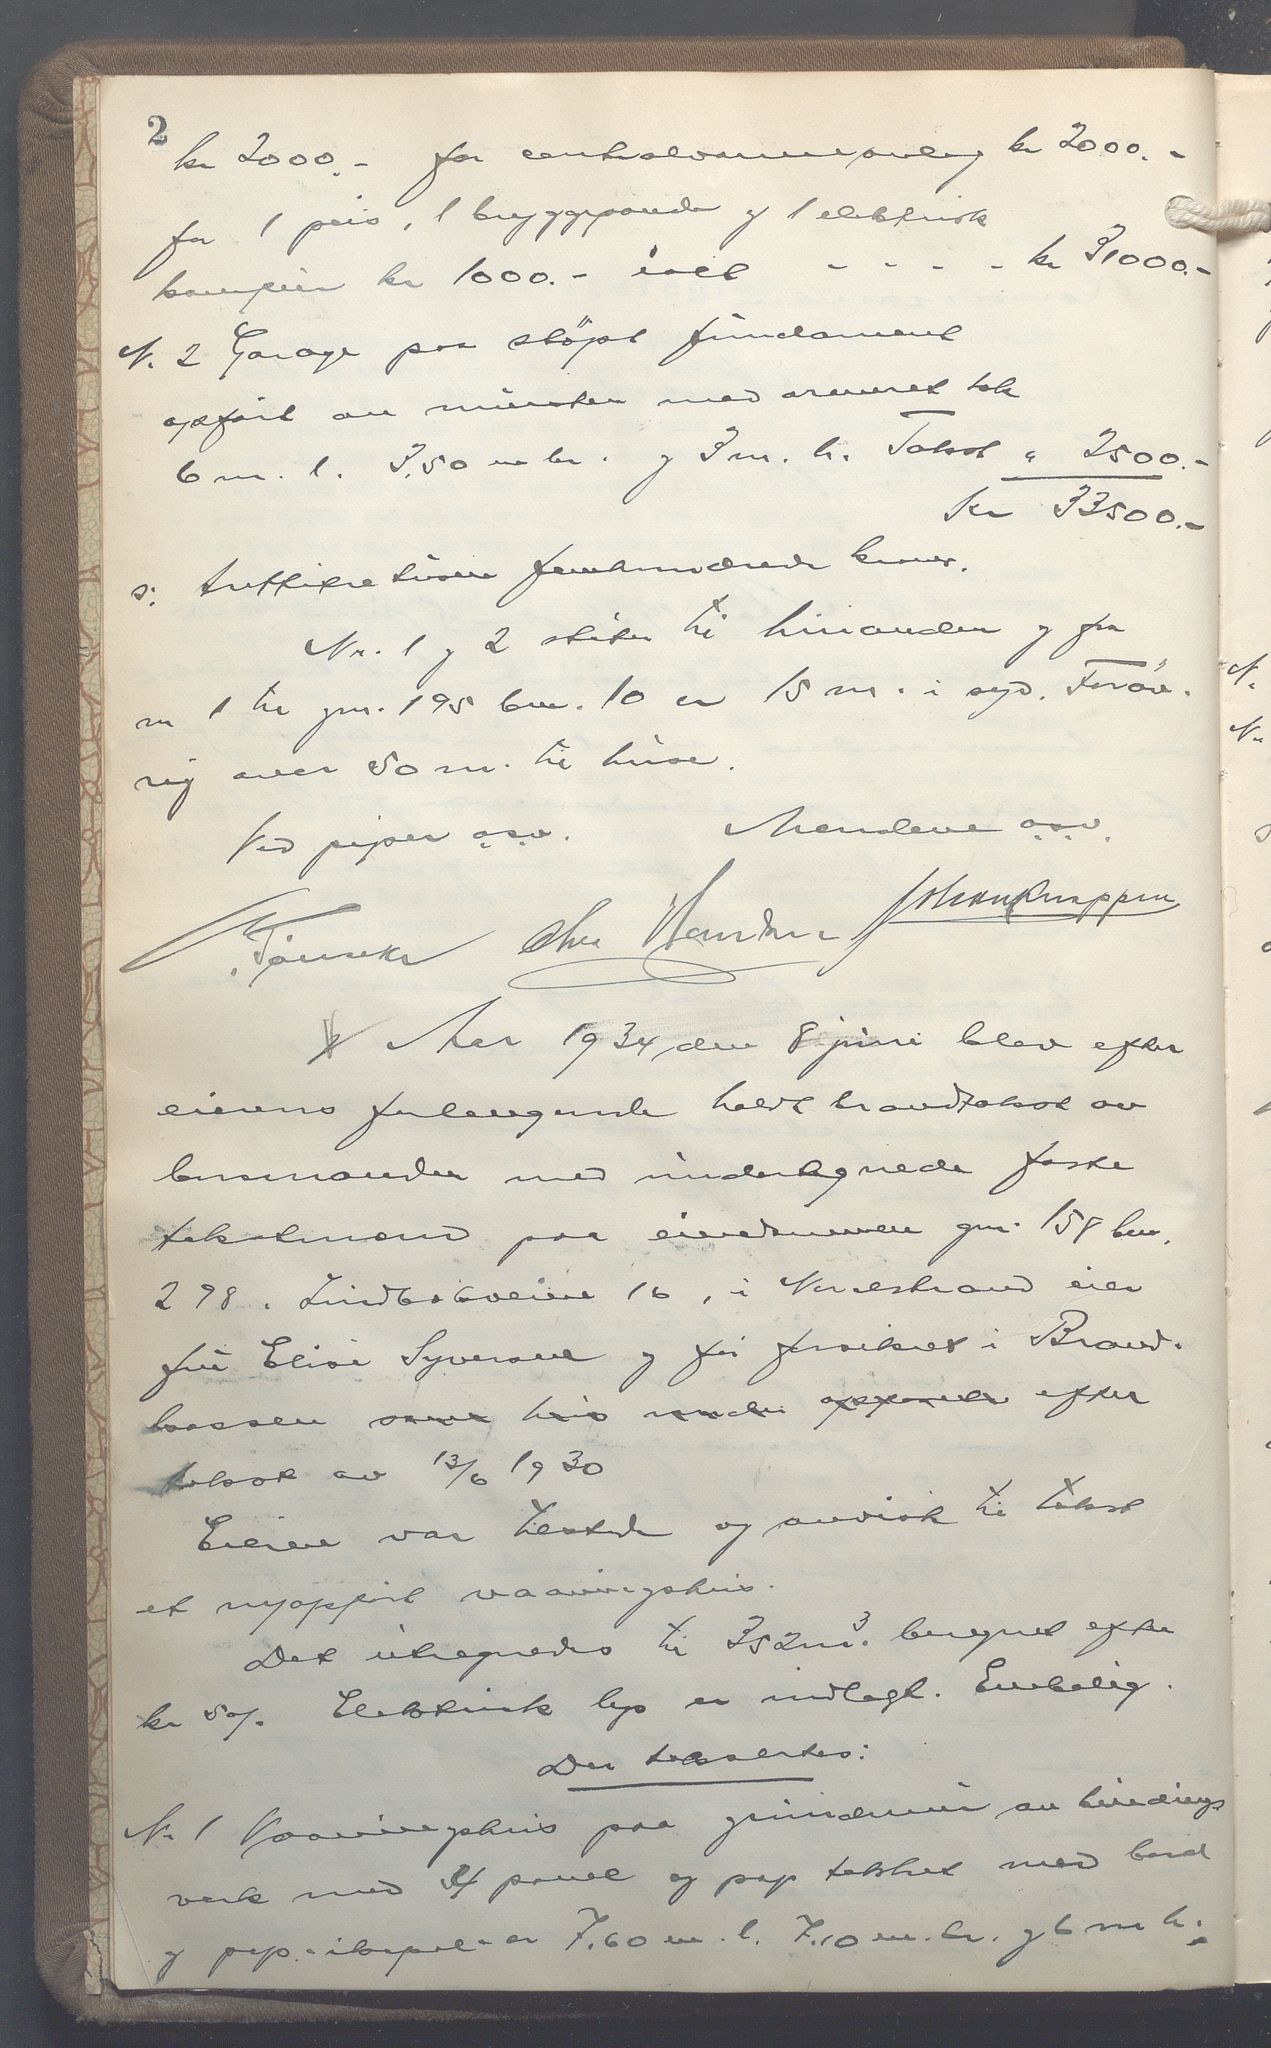 2
kr 2000.- for centralvarmeanlæg kr 2000.-
for 1 peis, 1 bryggepande og 1 elektrisk
komfür kr 1000.- ialt - - - - kr 31000.-
N. 2 Garage paa støpt fündament
opført av mürsten med armeret tak
6 m. l. 3,50 m br. og 3 m. h. Takst " 2500.-
Kr 33500.-
s: trettitre tüsen femhundrede kroner.
Nr. 1 og 2 støter til hinanden og fra
nr 1 til gnr. 195 bnr. 10 er 15 m. i syd. Forøv-
rig over 50 m. til hüse.
Ved piper o.s.v. Mændene o.s.v.
Chr Johan Knappen
Aar 1934 den 8 jüni blev efter
eierens forlangende holdt brandtakst av
lensmanden med ündertegnede faste
takstmænd paa eiendommen gnr. 158 bnr.
298. 16, i Nordstrand eier
früe Elise Syversen og før forsikret i Brand-
kassen efter
takst av 13/6 1930
Eieren var tilstede og anviste til takst
et nyopført vaaningshüs.
Det ütregnedes til 352 m³. beregnet efter
kr 50/. Elektrisk lys er indlagt. Enebolig.
Der taksertes:
Nr 1 Vaaningshüs paa gründmür av bindings
verk med panel og pap tækket med bord
og pap. er 7,60 m. l. 7,10 m. br. og 6 m h.